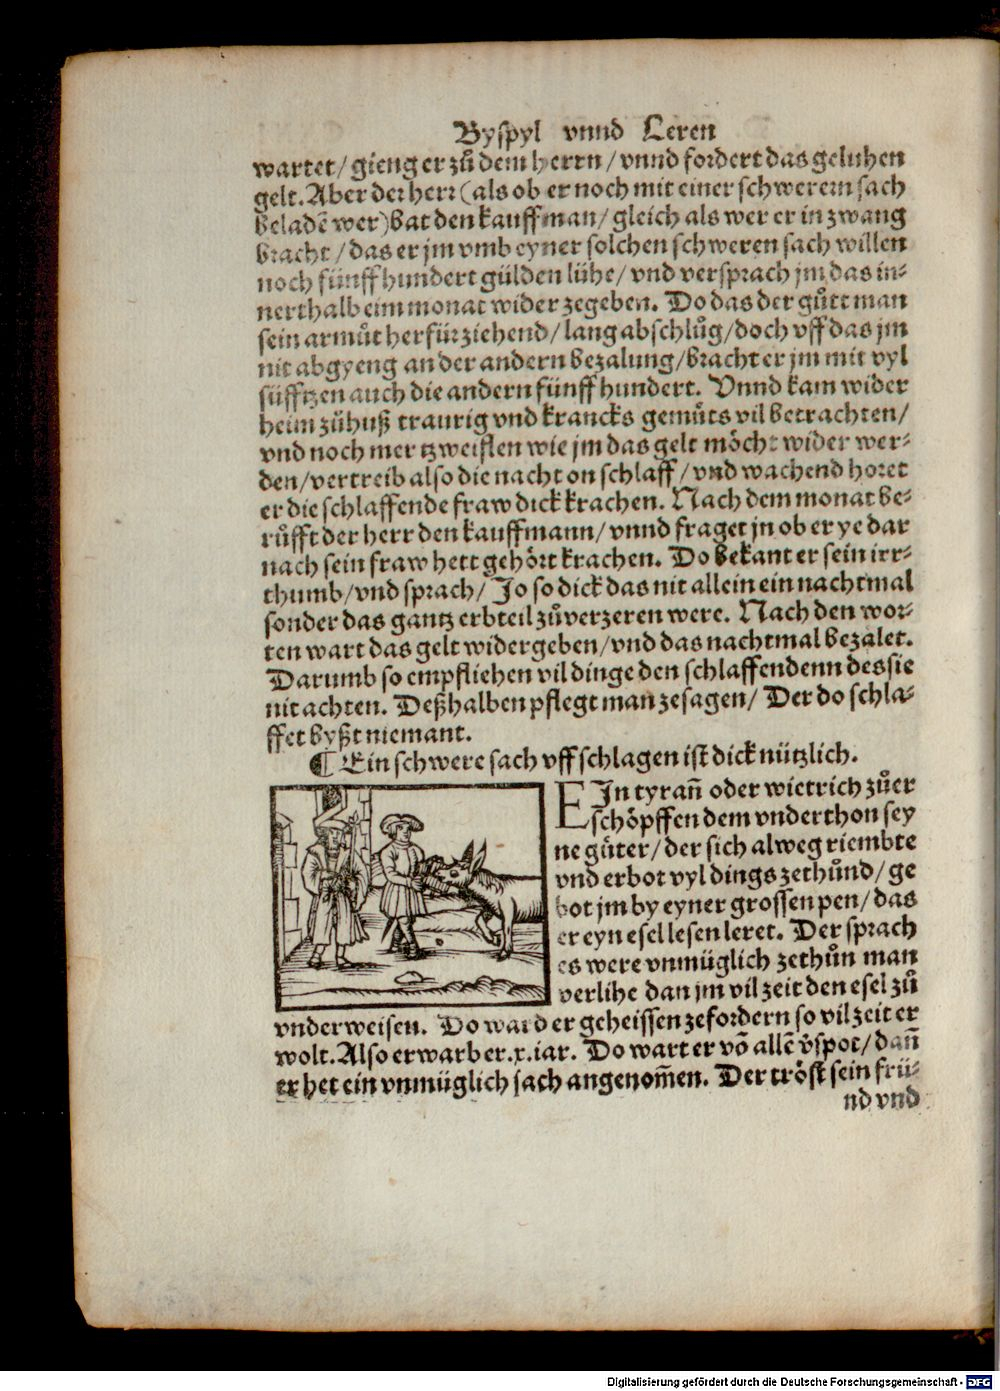 Byspyl vnnd Leren
wartet/ gieng er zů dem herrn/ vnnd fordert das geluhen
gelt. Aber der herr (als ob er noch mit einer schwerern sach
beladē wer) bat den kauffman/ gleich als wer er in zwang
bracht/ das er jm vmb eyner solchen schweren sach willen
noch fünff hundert gülden lühe/ vnd versprach jm das in-
nerthalb eim monat wider zegeben. Do das der gůtt man
sein armůt herfür ziehend/ lang abschlůg/ doch vff das jm
nit abgyeng an der andern bezalung/ bracht er jm mit vyl
süfftzen auch die andern fünff hundert. Vnnd kam wider
heim zůhuß traurig vnd krancks gemůts vil betrachten/
vnd noch mer tzweiflen wie jm das gelt möcht wider wer-
den/ vertreib also die nacht on schlaff/ vnd wachend horet
er die schlaffende fraw dick krachen. Nach dem monat be-
růfft der herr den kauffmann/ vnnd fraget jn ob er ye dar
nach sein fraw hett gehört krachen. Do bekant er sein irr-
thumb/ vnd sprach/ Jo so dick das nit allein ein nachtmal
sonder das gantz erbteil zůverzeren were. Nach den wor-
ten wart das gelt widergeben/ vnd das nachtmal bezalet.
Darumb so empfliehen vil dinge den schlaffendenn des sie
nit achten. Deßhalben pflegt man zesagen/ Der do schla-
ffet byßt niemant.
¶ Ein schwere sach vff schlagen ist dick nützlich.
EIn tyrañ oder wietrich zůer
schöpffen dem vnderthon sey
ne gůter/ der sich alweg riembte
vnd erbot vyl dings zethůnd/ ge
bot jm by eyner grossen pen/ das
er eyn esel lesen leret. Der sprach
es were vnmüglich zethůn man
verlihe dan jm vil zeit den esel zů
vnderweisen. Do ward er geheissen zefordern so vil zeit er
wolt. Also erwarb er .x. iar. Do wart er vō allē v̊spot/ dañ
er het ein vnmüglich sach angenom̄en. Der tröst sein frü-
nd vnd
Digitalisierung gefördert durch die Deutsche Forschungsgemeinschaft - DFG